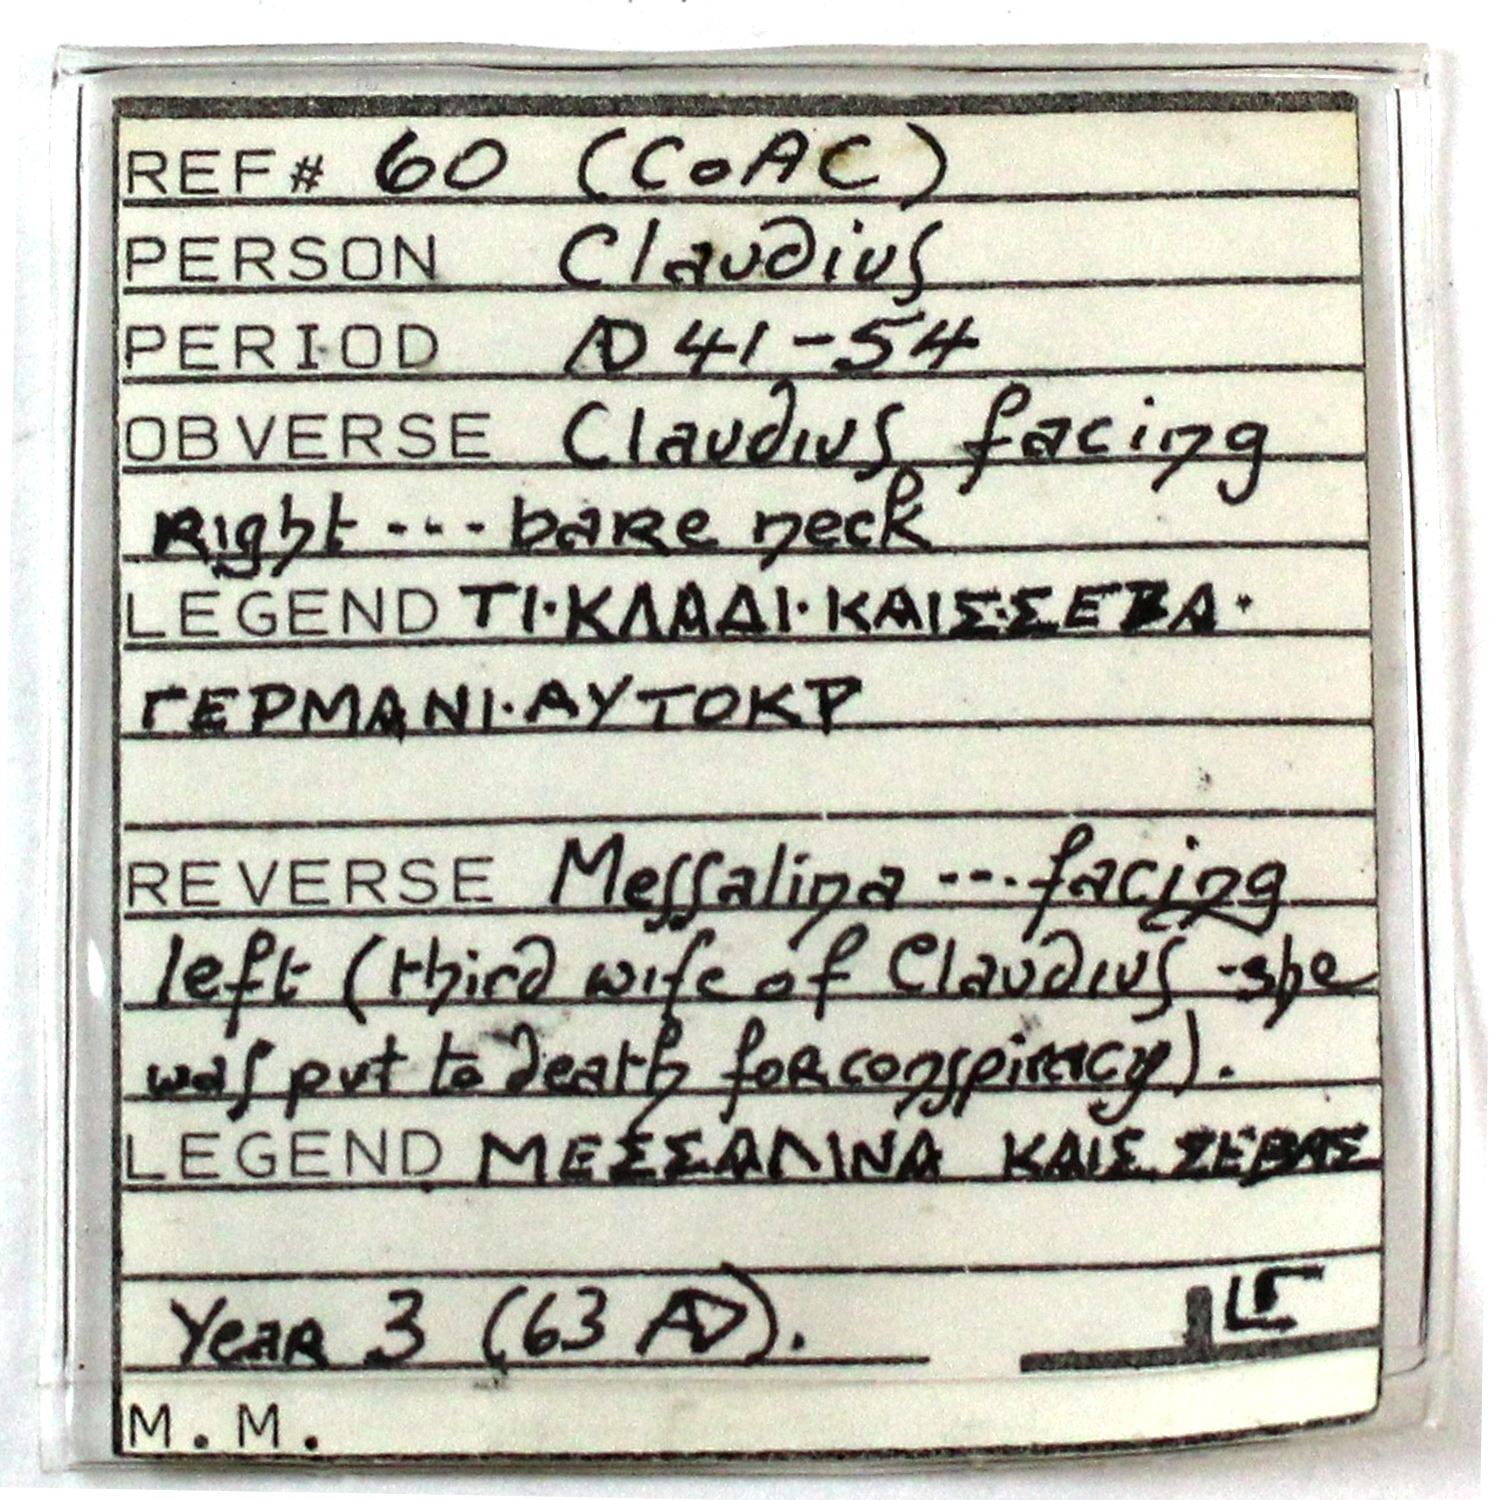 REF# 60 (CoAC)
PERSON Claudius
PERIOD AD 41-54
OBVERSE Claudius facing
Right --- bare neck
LEGEND ΤΙ·ΚΛΑΔΙ·ΚΑΙΣ·ΣΕΒΑ·
ΓΕΡΜΑΝΙ·ΑΥΤΟΚΡ
REVERSE Messalina --- facing
left (third wife of Claudius -she
was put to death for conspiracy).
LEGEND ΜΕΣΣΑΛΙΝΑ ΚΑΙΣ ΣΕΒΑΣ
Year 3 (63 AD). LΓ
M.M.